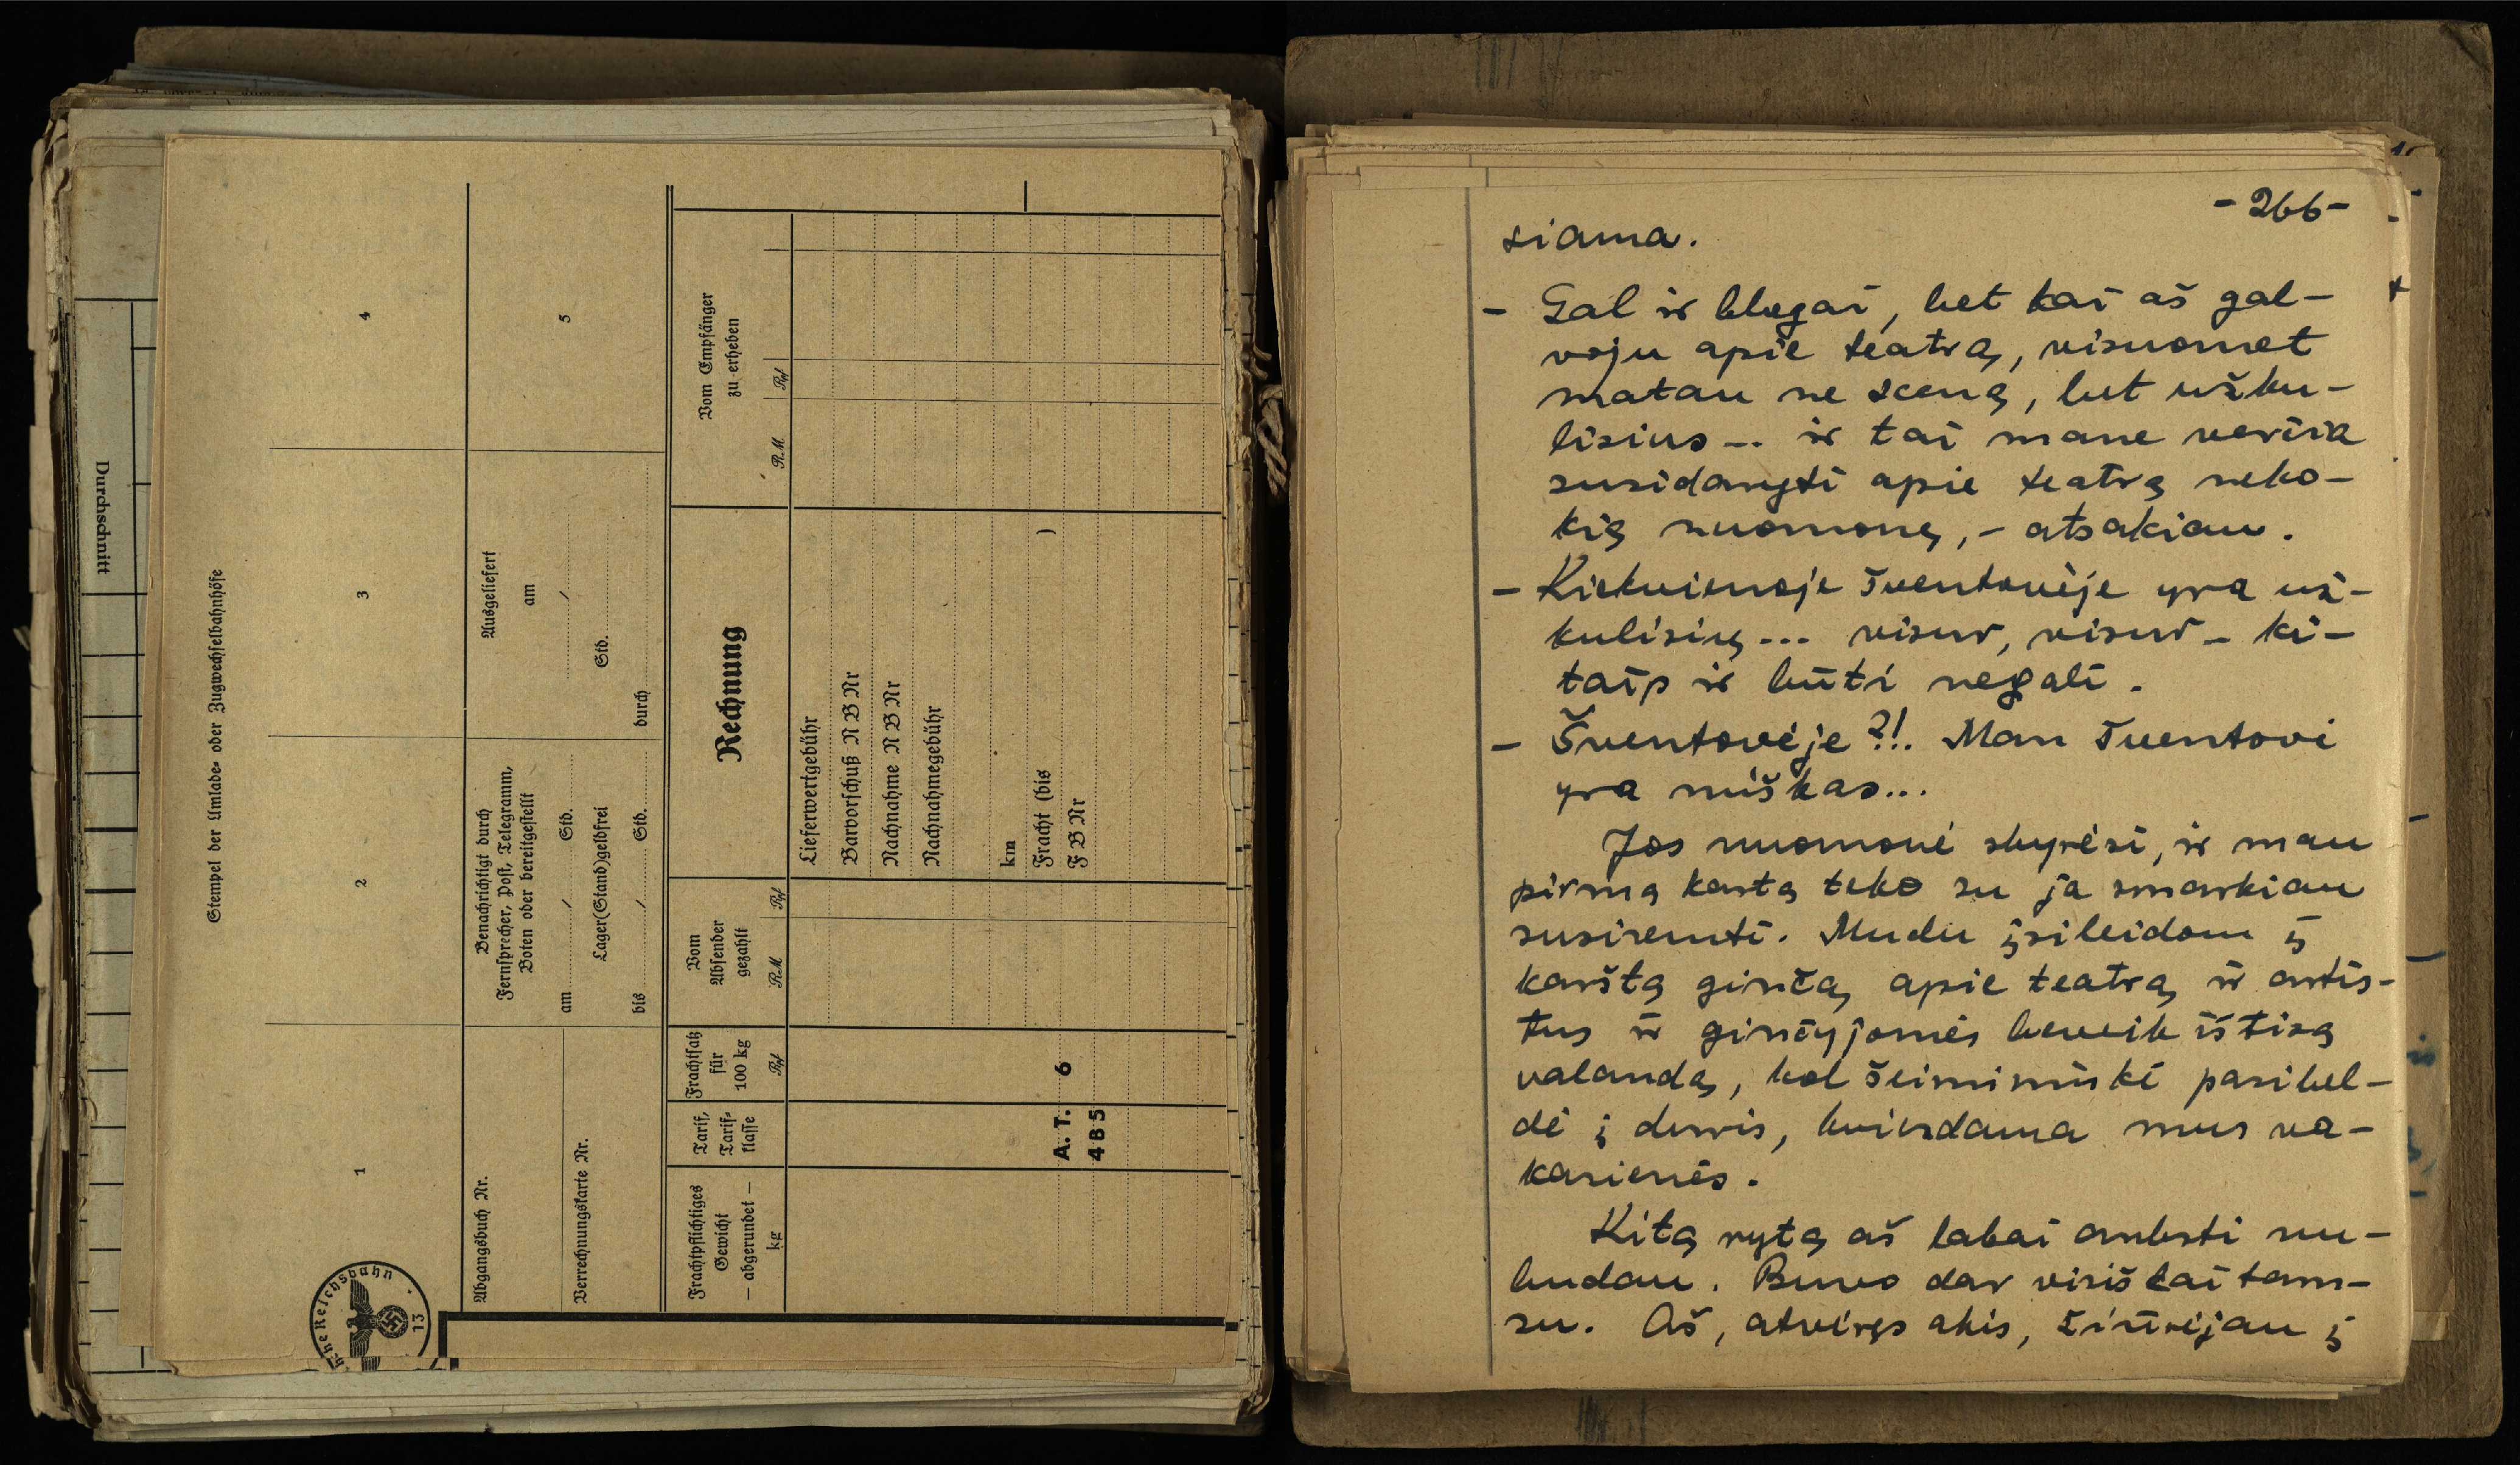 Durchschnitt
Stempel der Umlade- oder Zugwechselbahnhöfe
1
2
3
4
Abgangsbuch Nr.
Verrechnungskarte Nr.
Benachrichtigt durch
Fernsprecher, Post, Telegramm,
Boten oder bereitgestellt
am / Std.
Lager(Stand)geldfrei
bis / Std.
Ausgeliefert
am
/
Std.
durch
5
Frachtpflichtiges
Gewicht
— abgerundet —
kg
Tarif,
Tarif-
klasse
Frachtsatz
für
100 kg
Rpf
Vom
Absender
gezahlt
RM Rpf
Rechnung
Vom Empfänger
zu erheben
RM Rpf
Lieferwertgebühr
Barvorschuß N B Nr
Nachnahme N B Nr
Nachnahmegebühr
km
Fracht (bis )
F B Nr
A. T. 6
4 8 5
che Reichsbahn
13
- 266 -
siama.
- Gal ir blogai, bet kai aš gal-
voju apie teatrą, visuomet
matau ne sceną, bet užku-
lisius... ir tai mane verčia
susidaryti apie teatrą neko-
kią nuomonę, - atsakiau.
- Kiekvienoje šventovėje yra už-
kulisių... visur, visur - ki-
taip ir būti negali.
- Šventovėje?!. Man šventovė
yra miškas...
Jos nuomonė skyrėsi, ir man
pirmą kartą teko su ja smarkiau
susiremti. Mudu įsileidom į
karštą ginčą apie teatrą ir artis-
tus ir ginčyjomės beveik ištisą
valandą, kol šeimininkė pasibel-
dė į duris, kviesdama mus va-
karienės.
Kitą rytą aš labai anksti nu-
budau. Buvo dar visiškai tam-
su. Aš, atvirąs akis, žiūrėjau į